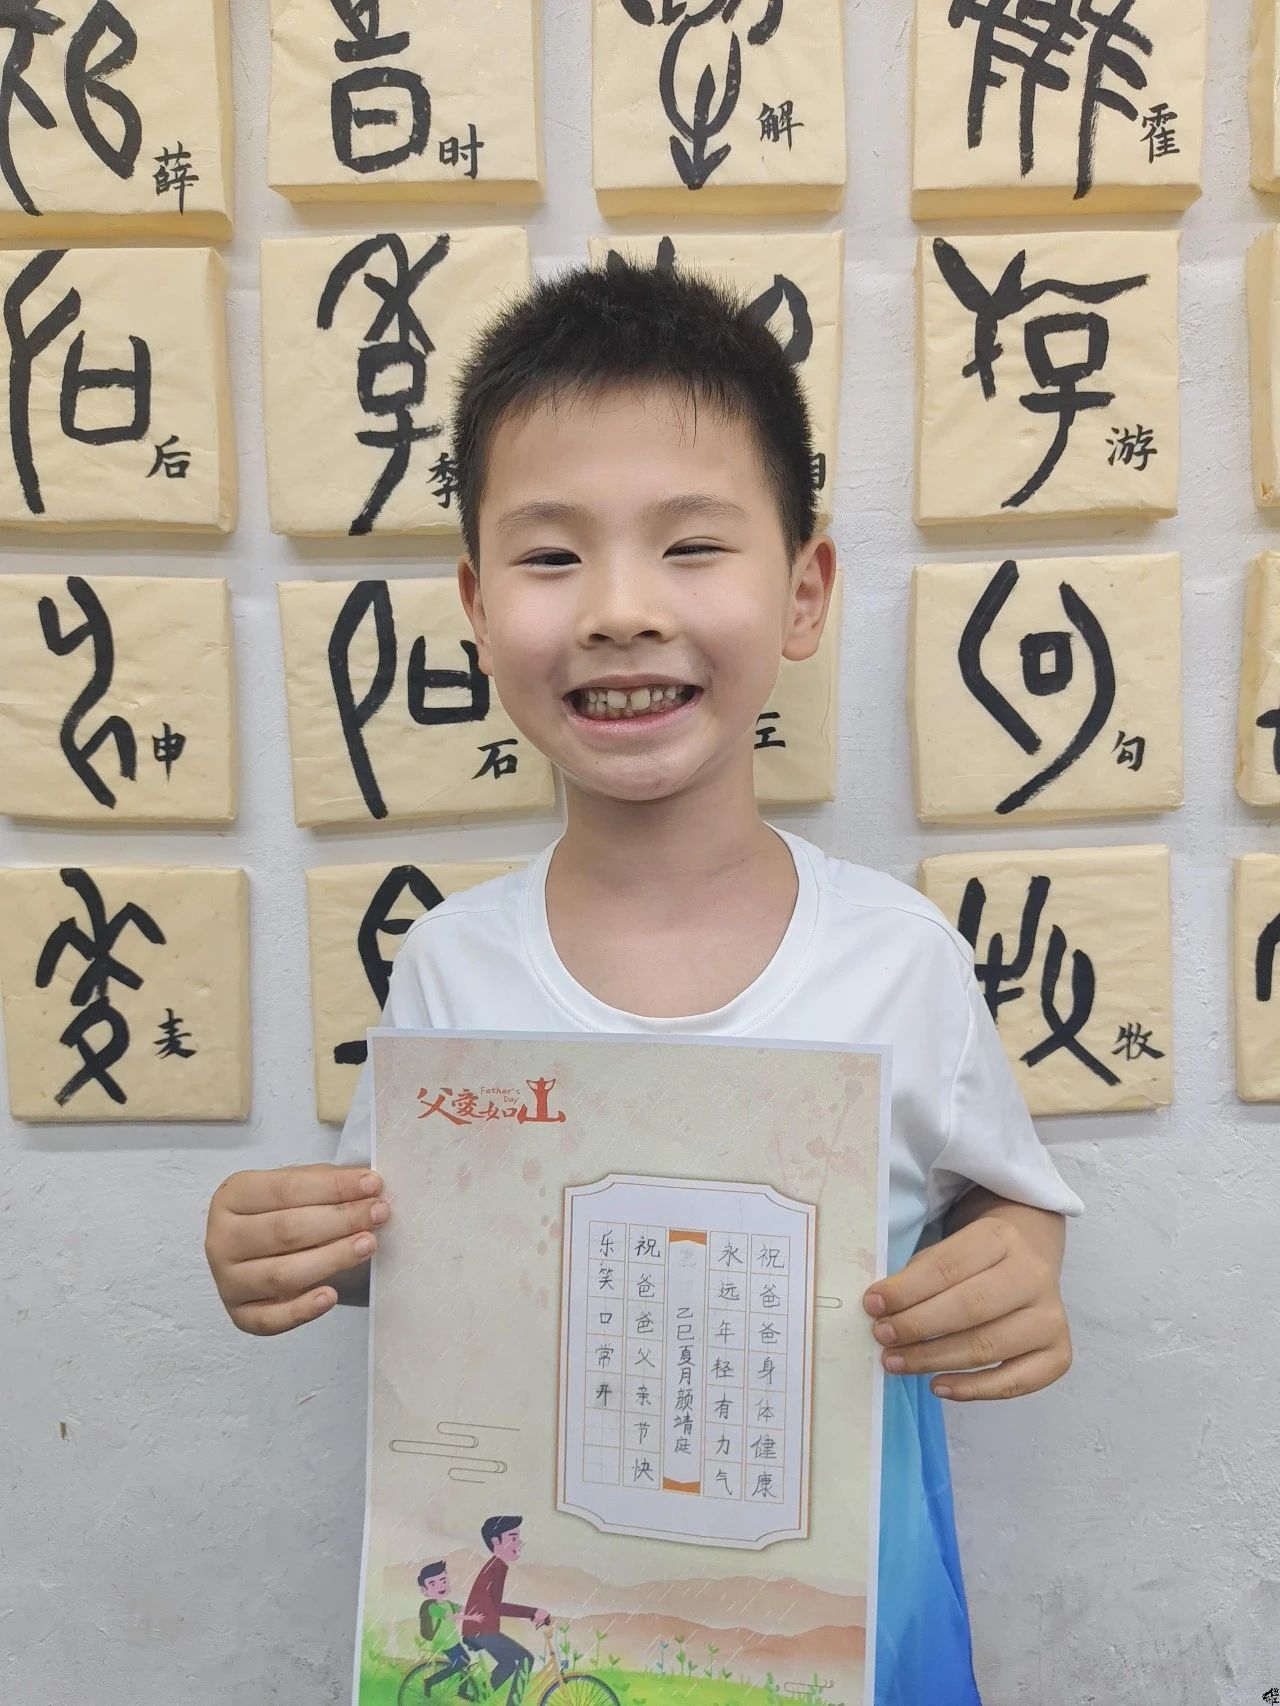 薛
时
解
霍
后
季
游
申
石
勾
麦
牧
父爱如山
Father's
Day
祝爸爸身体健康
永远年轻有力气
乙巳夏月颜靖庭
祝爸爸父亲节快
乐笑口常开